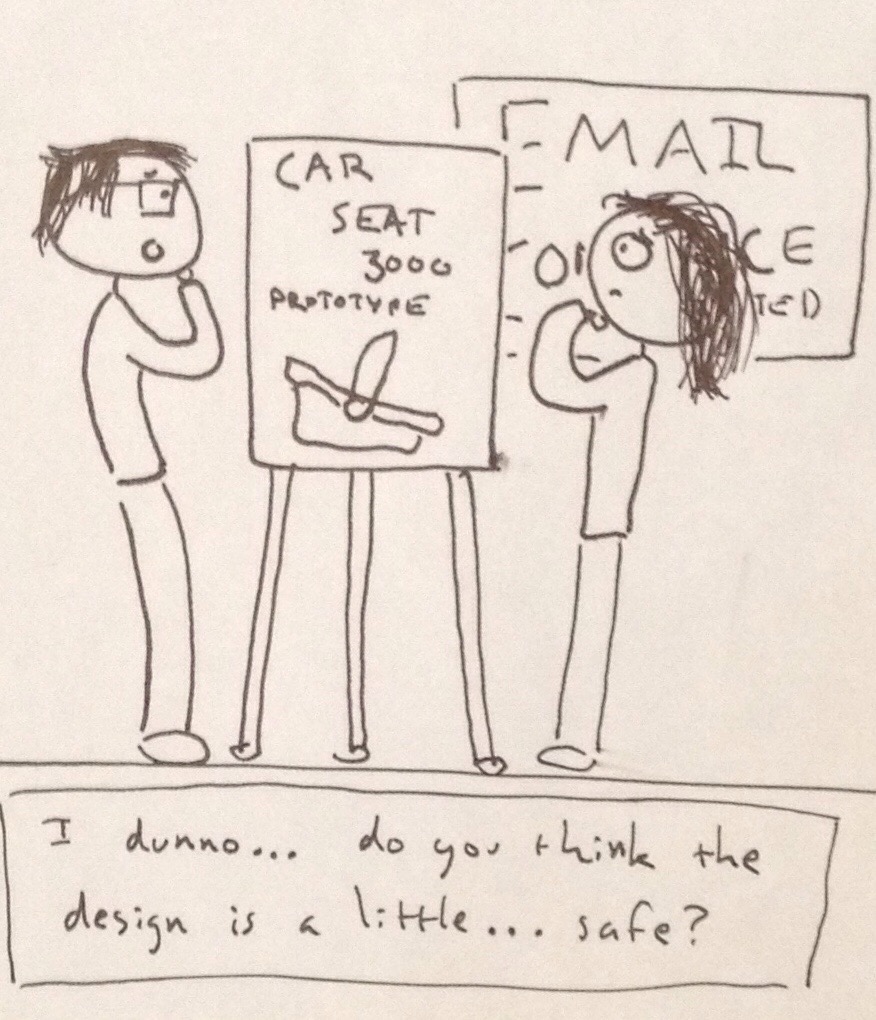 CAR
SEAT
3000
PROTOTYPE
MAIL
I dunno... do you think the
design is a little... safe?